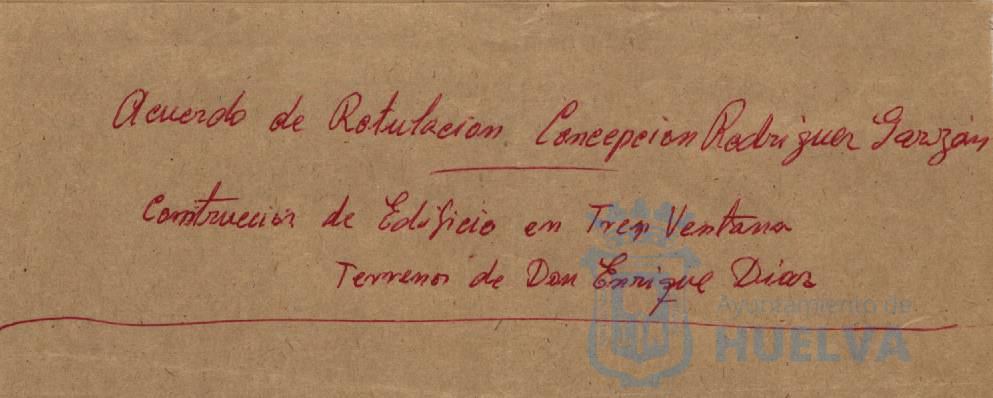 Acuerdo de Rotulacion Concepcion Rodriguez Garzón
Construccion de Edificio en Tres Ventana
Terrenos de Don Enrique Diaz
Ayuntamiento de
HUELVA